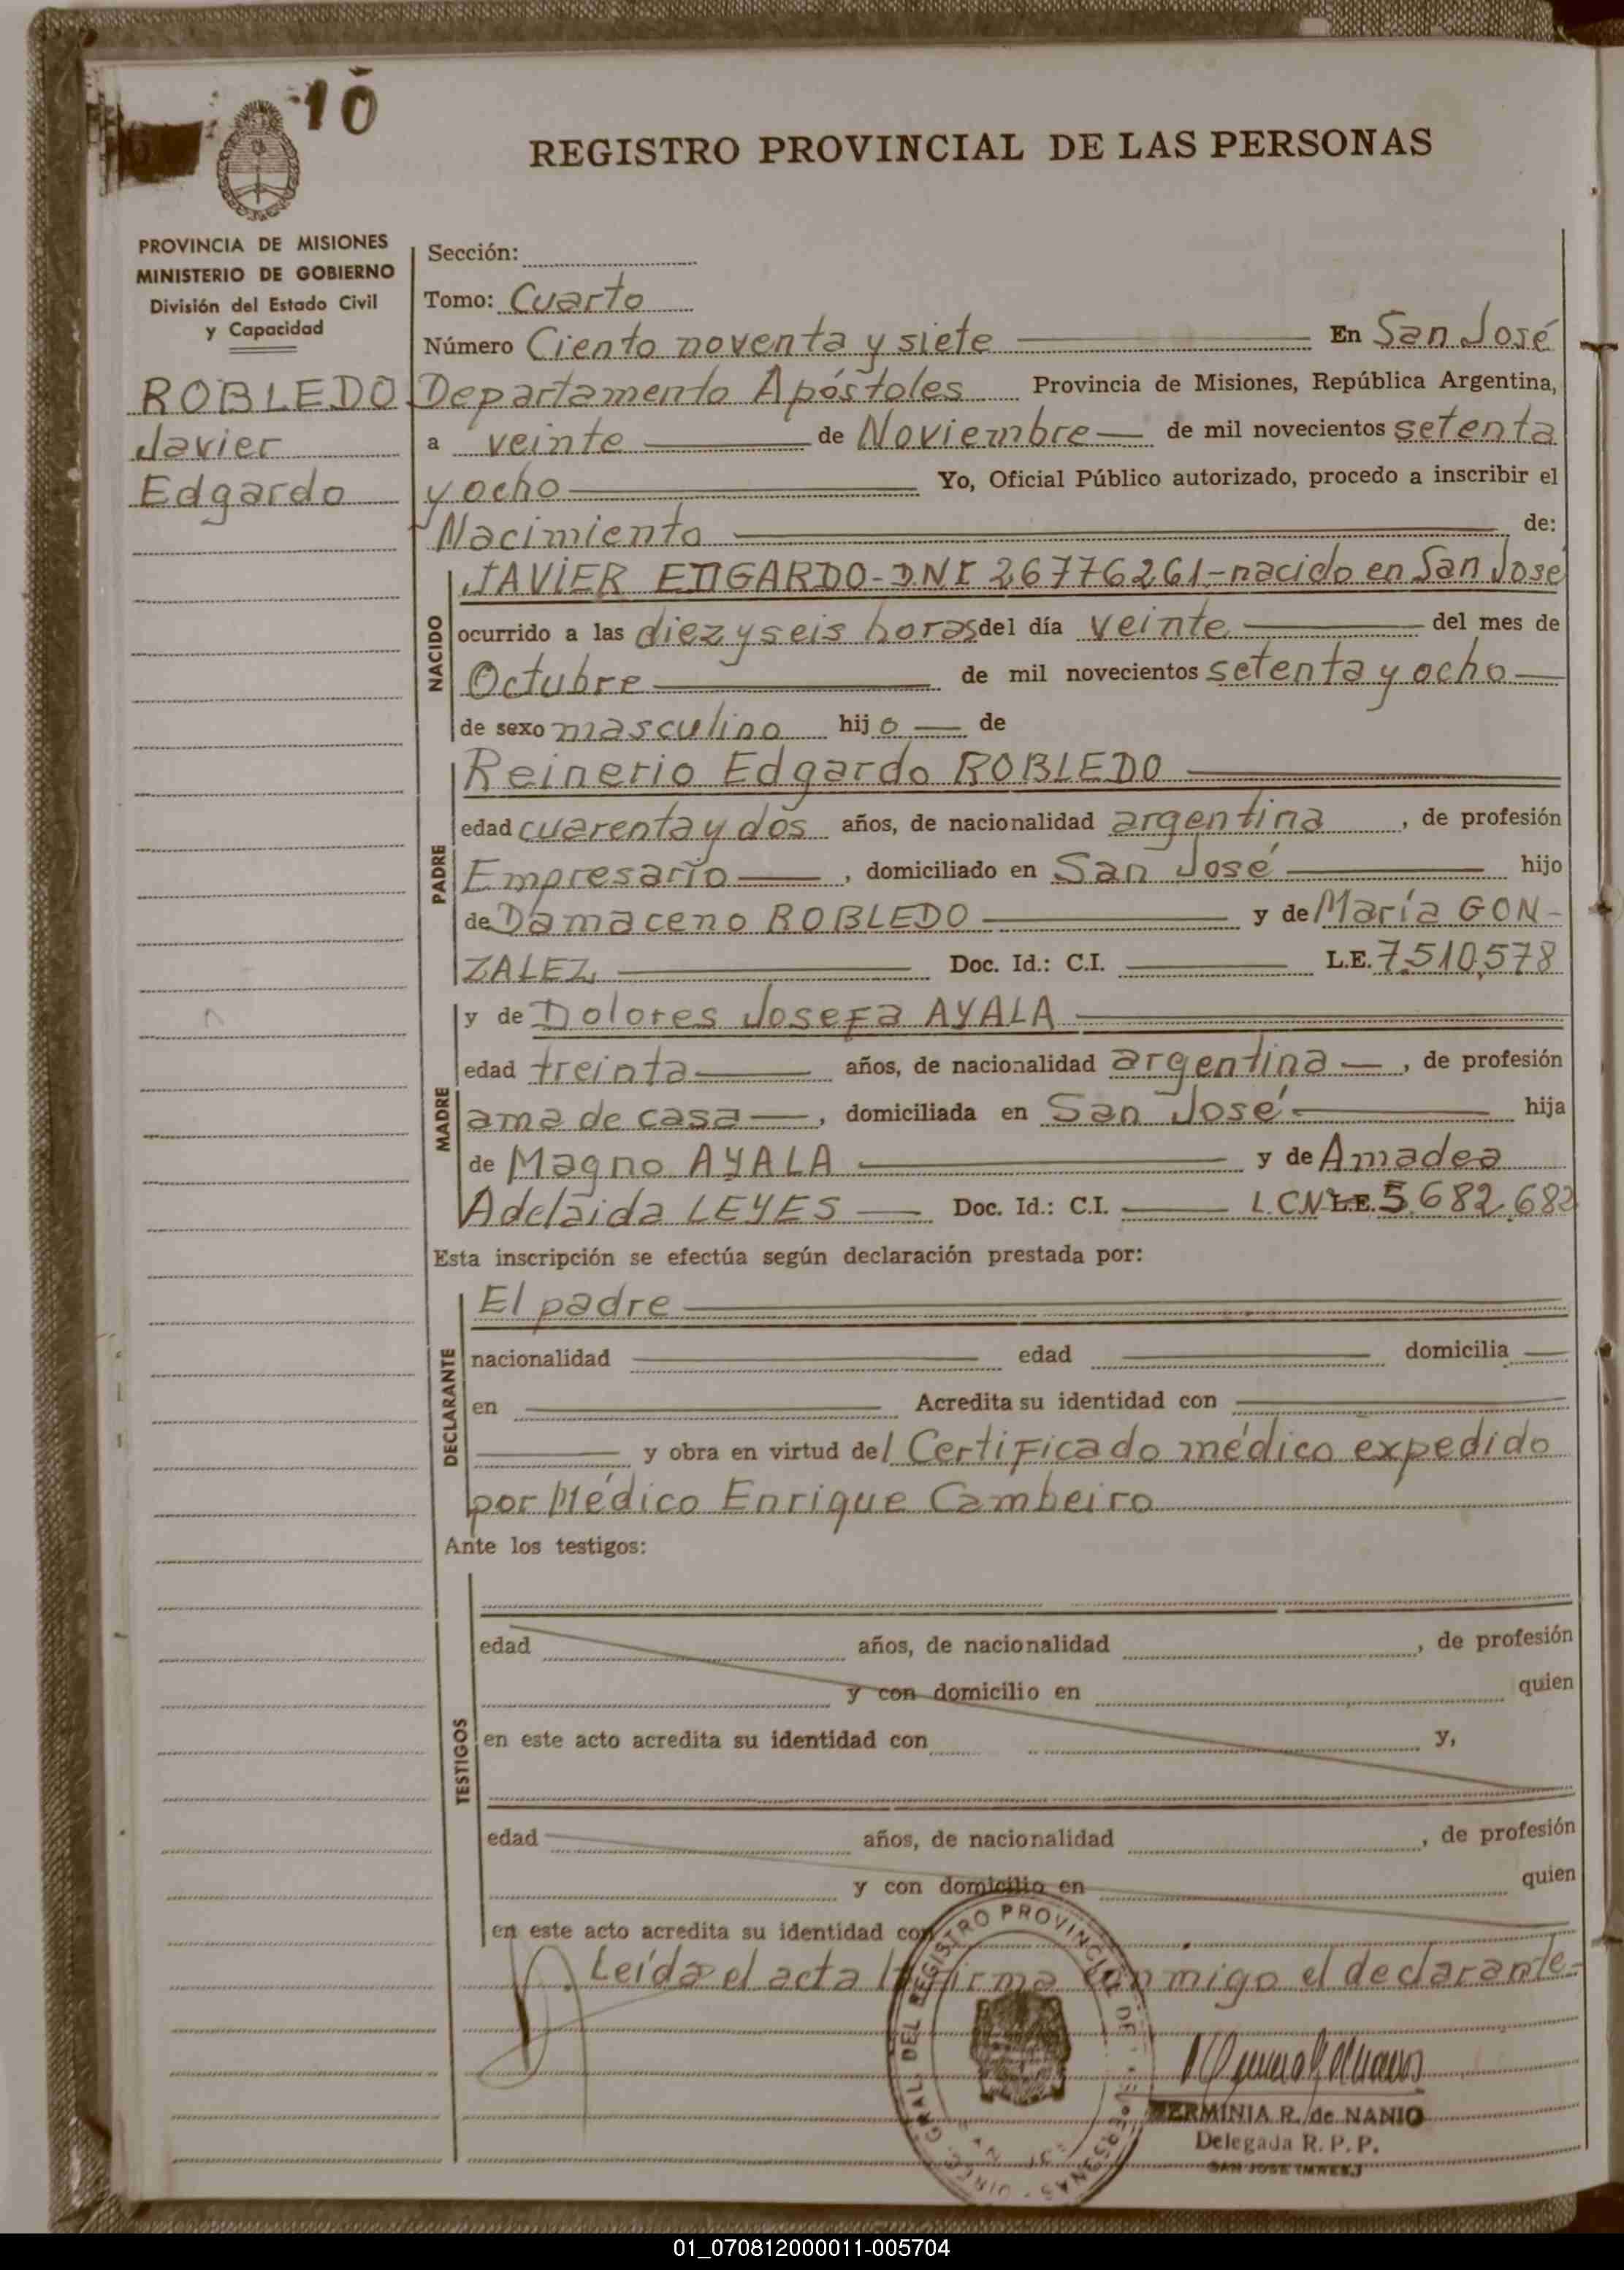 10
REGISTRO PROVINCIAL DE LAS PERSONAS
PROVINCIA DE MISIONES
MINISTERIO DE GOBIERNO
División del Estado Civil
y Capacidad
ROBLEDO
Javier
Edgardo
Sección:
Tomo: Cuarto
Número Ciento noventa y siete En San José
Departamento Apóstoles Provincia de Misiones, República Argentina,
a veinte de Noviembre de mil novecientos setenta
y ocho Yo, Oficial Público autorizado, procedo a inscribir el
Nacimiento de:
NACIDO
JAVIER EDGARDO - D.N.I 26776261 - nacido en San José
ocurrido a las diez y seis horas del día veinte del mes de
Octubre de mil novecientos setenta y ocho
de sexo masculino hijo de
PADRE
Reinerio Edgardo ROBLEDO
edad cuarenta y dos años, de nacionalidad argentina, de profesión
Empresario, domiciliado en San José hijo
de Damaceno ROBLEDO y de María GON-
ZALEZ Doc. Id.: C.I. L.E. 7.510.578
MADRE
y de Dolores Josefa AYALA
edad treinta años, de nacionalidad argentina, de profesión
ama de casa, domiciliada en San José hija
de Magno AYALA y de Amadea
Adelaida LEYES Doc. Id.: C.I. L.C.Nº L.E. 5.682.682
Esta inscripción se efectúa según declaración prestada por:
DECLARANTE
El padre
nacionalidad edad domicilia
en Acredita su identidad con
y obra en virtud del Certificado médico expedido
por Médico Enrique Cambeiro
Ante los testigos:
TESTIGOS
edad años, de nacionalidad , de profesión
y con domicilio en quien
en este acto acredita su identidad con y,
edad años, de nacionalidad , de profesión
y con domicilio en quien
en este acto acredita su identidad con
Leída el acta la firma conmigo el declarante.-
GRAL. DEL REGISTRO PROVINCIAL DE PERSONAS
HERMINIA R. de NANIO
Delegada R. P. P.
SAN JOSE (MNES.)
01_070812000011-005704